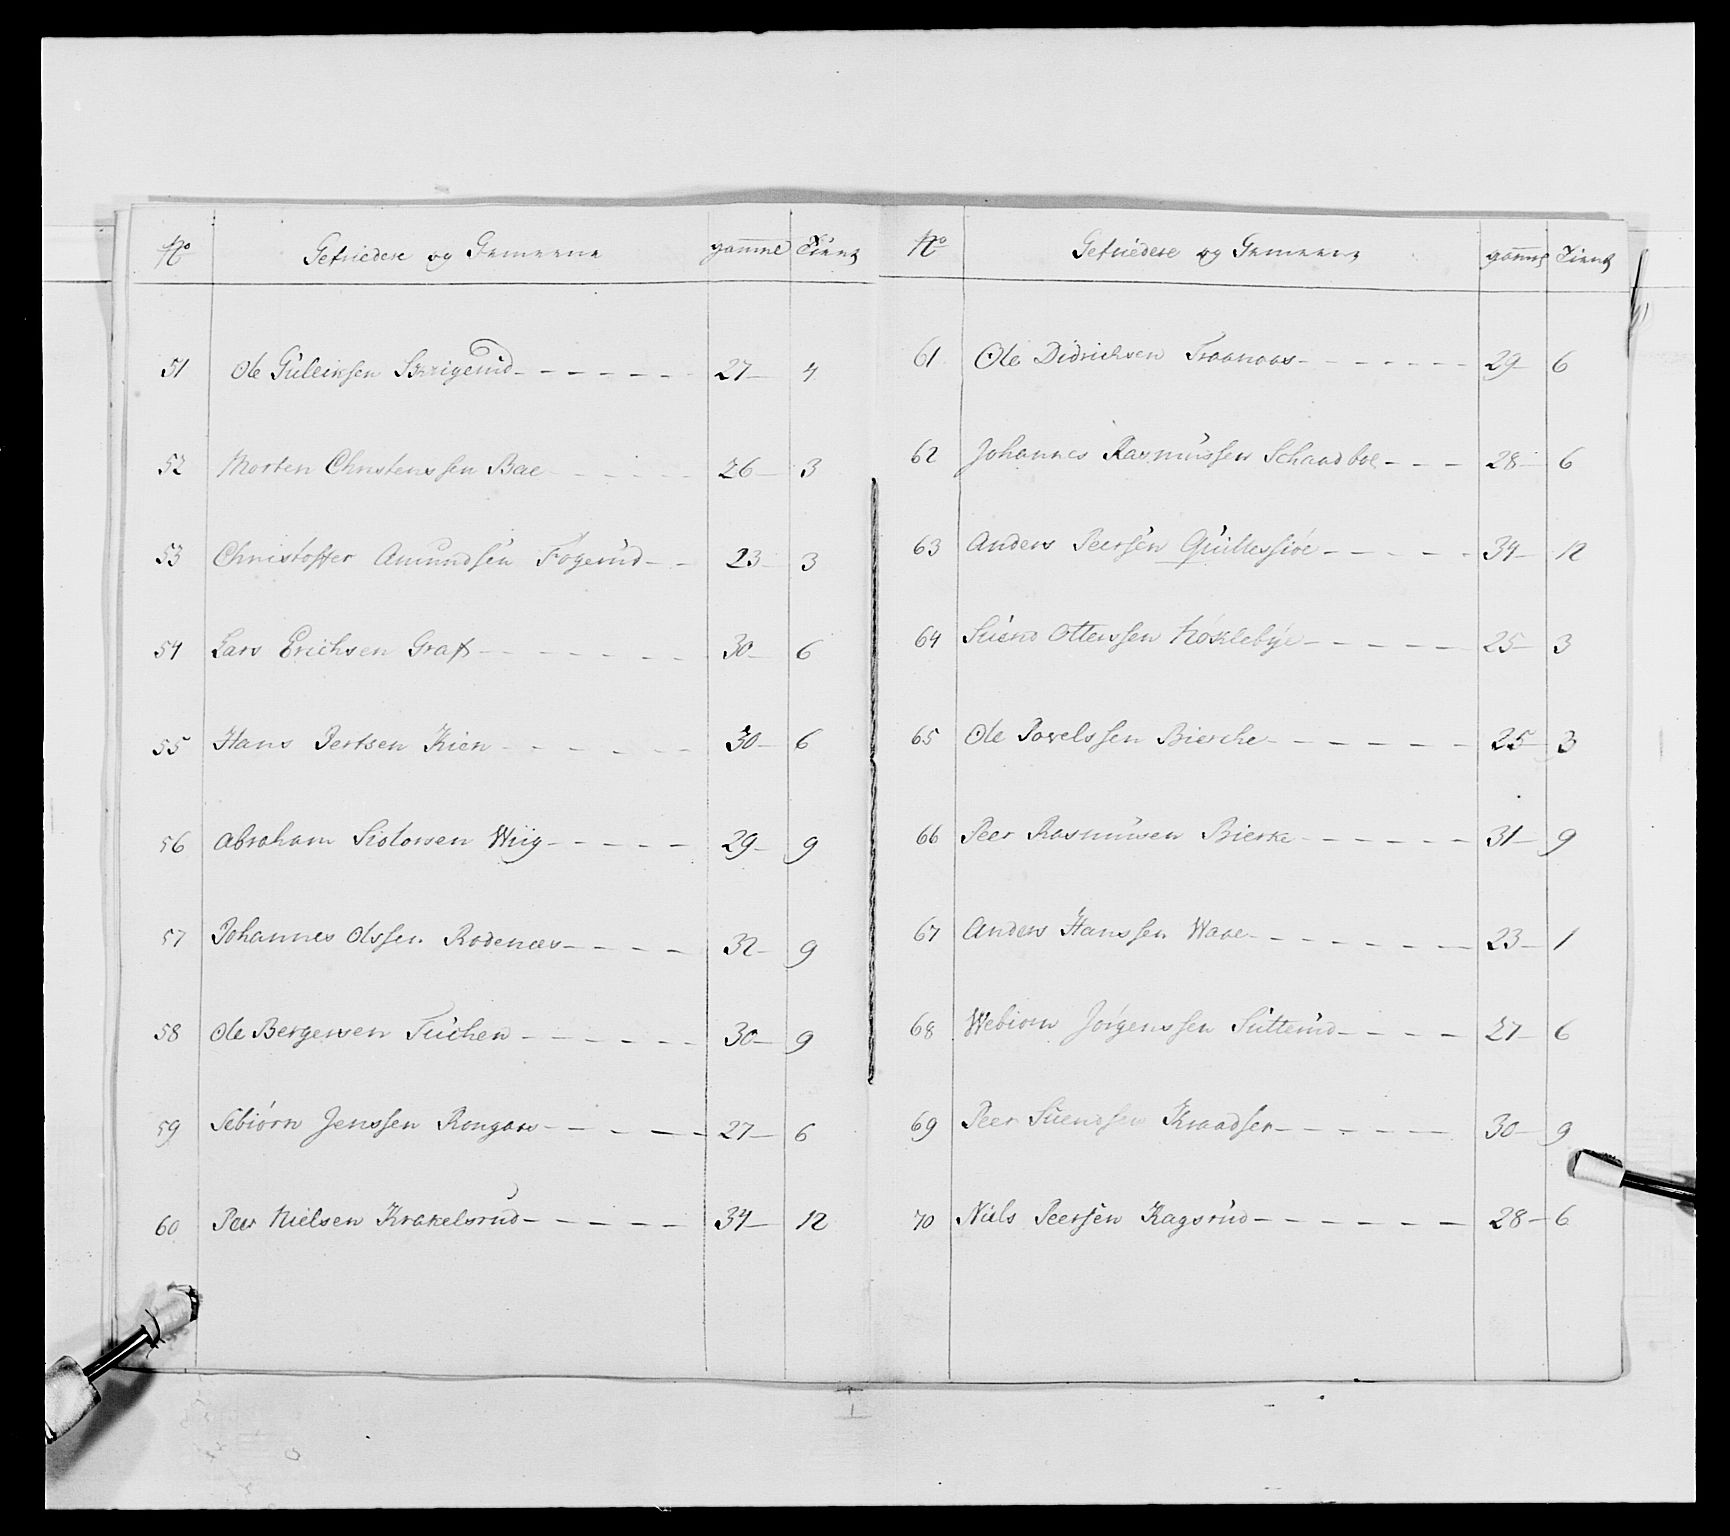 No Gefriedere og Gemeene gamml Tient
51 Ole Gulleiksen 27 4
52 Morten Christenssen Bae 26 3
53 Christoffer Amundsen Fogerud 23 3
54 Lars Erichsen Graf 30 6
55 Hans Pertsen Kien 30 6
56 Abraham Wiig 29 9
57 Johannes Olssen Rodenæs 32 9
58 Ole Bergersen Tuchen 30 9
59 Sebiørn Jenssen Rongaas 27 6
60 Peer Nielsen Krakelsrud 34 12
No Gefriedere og Gemeene gamml Tient
61 Ole Didrichsen Traanaas 29 6
62 Johannes Rasmussen Schaadboe 28 6
63 Anders Peersen Quillessiøe 34 12
64 Suend Ottenssen Høklebye 25 3
65 Ole Povelssen Bierche 25 3
66 Peer Rasmussen Bierke 31 9
67 Anders Hanssen Waae 23 1
68 Webiørn Jørgenssen Sutterud 27 6
69 Peer Suendsen 30 9
70 Niels Peersen Kagsrud 28 6